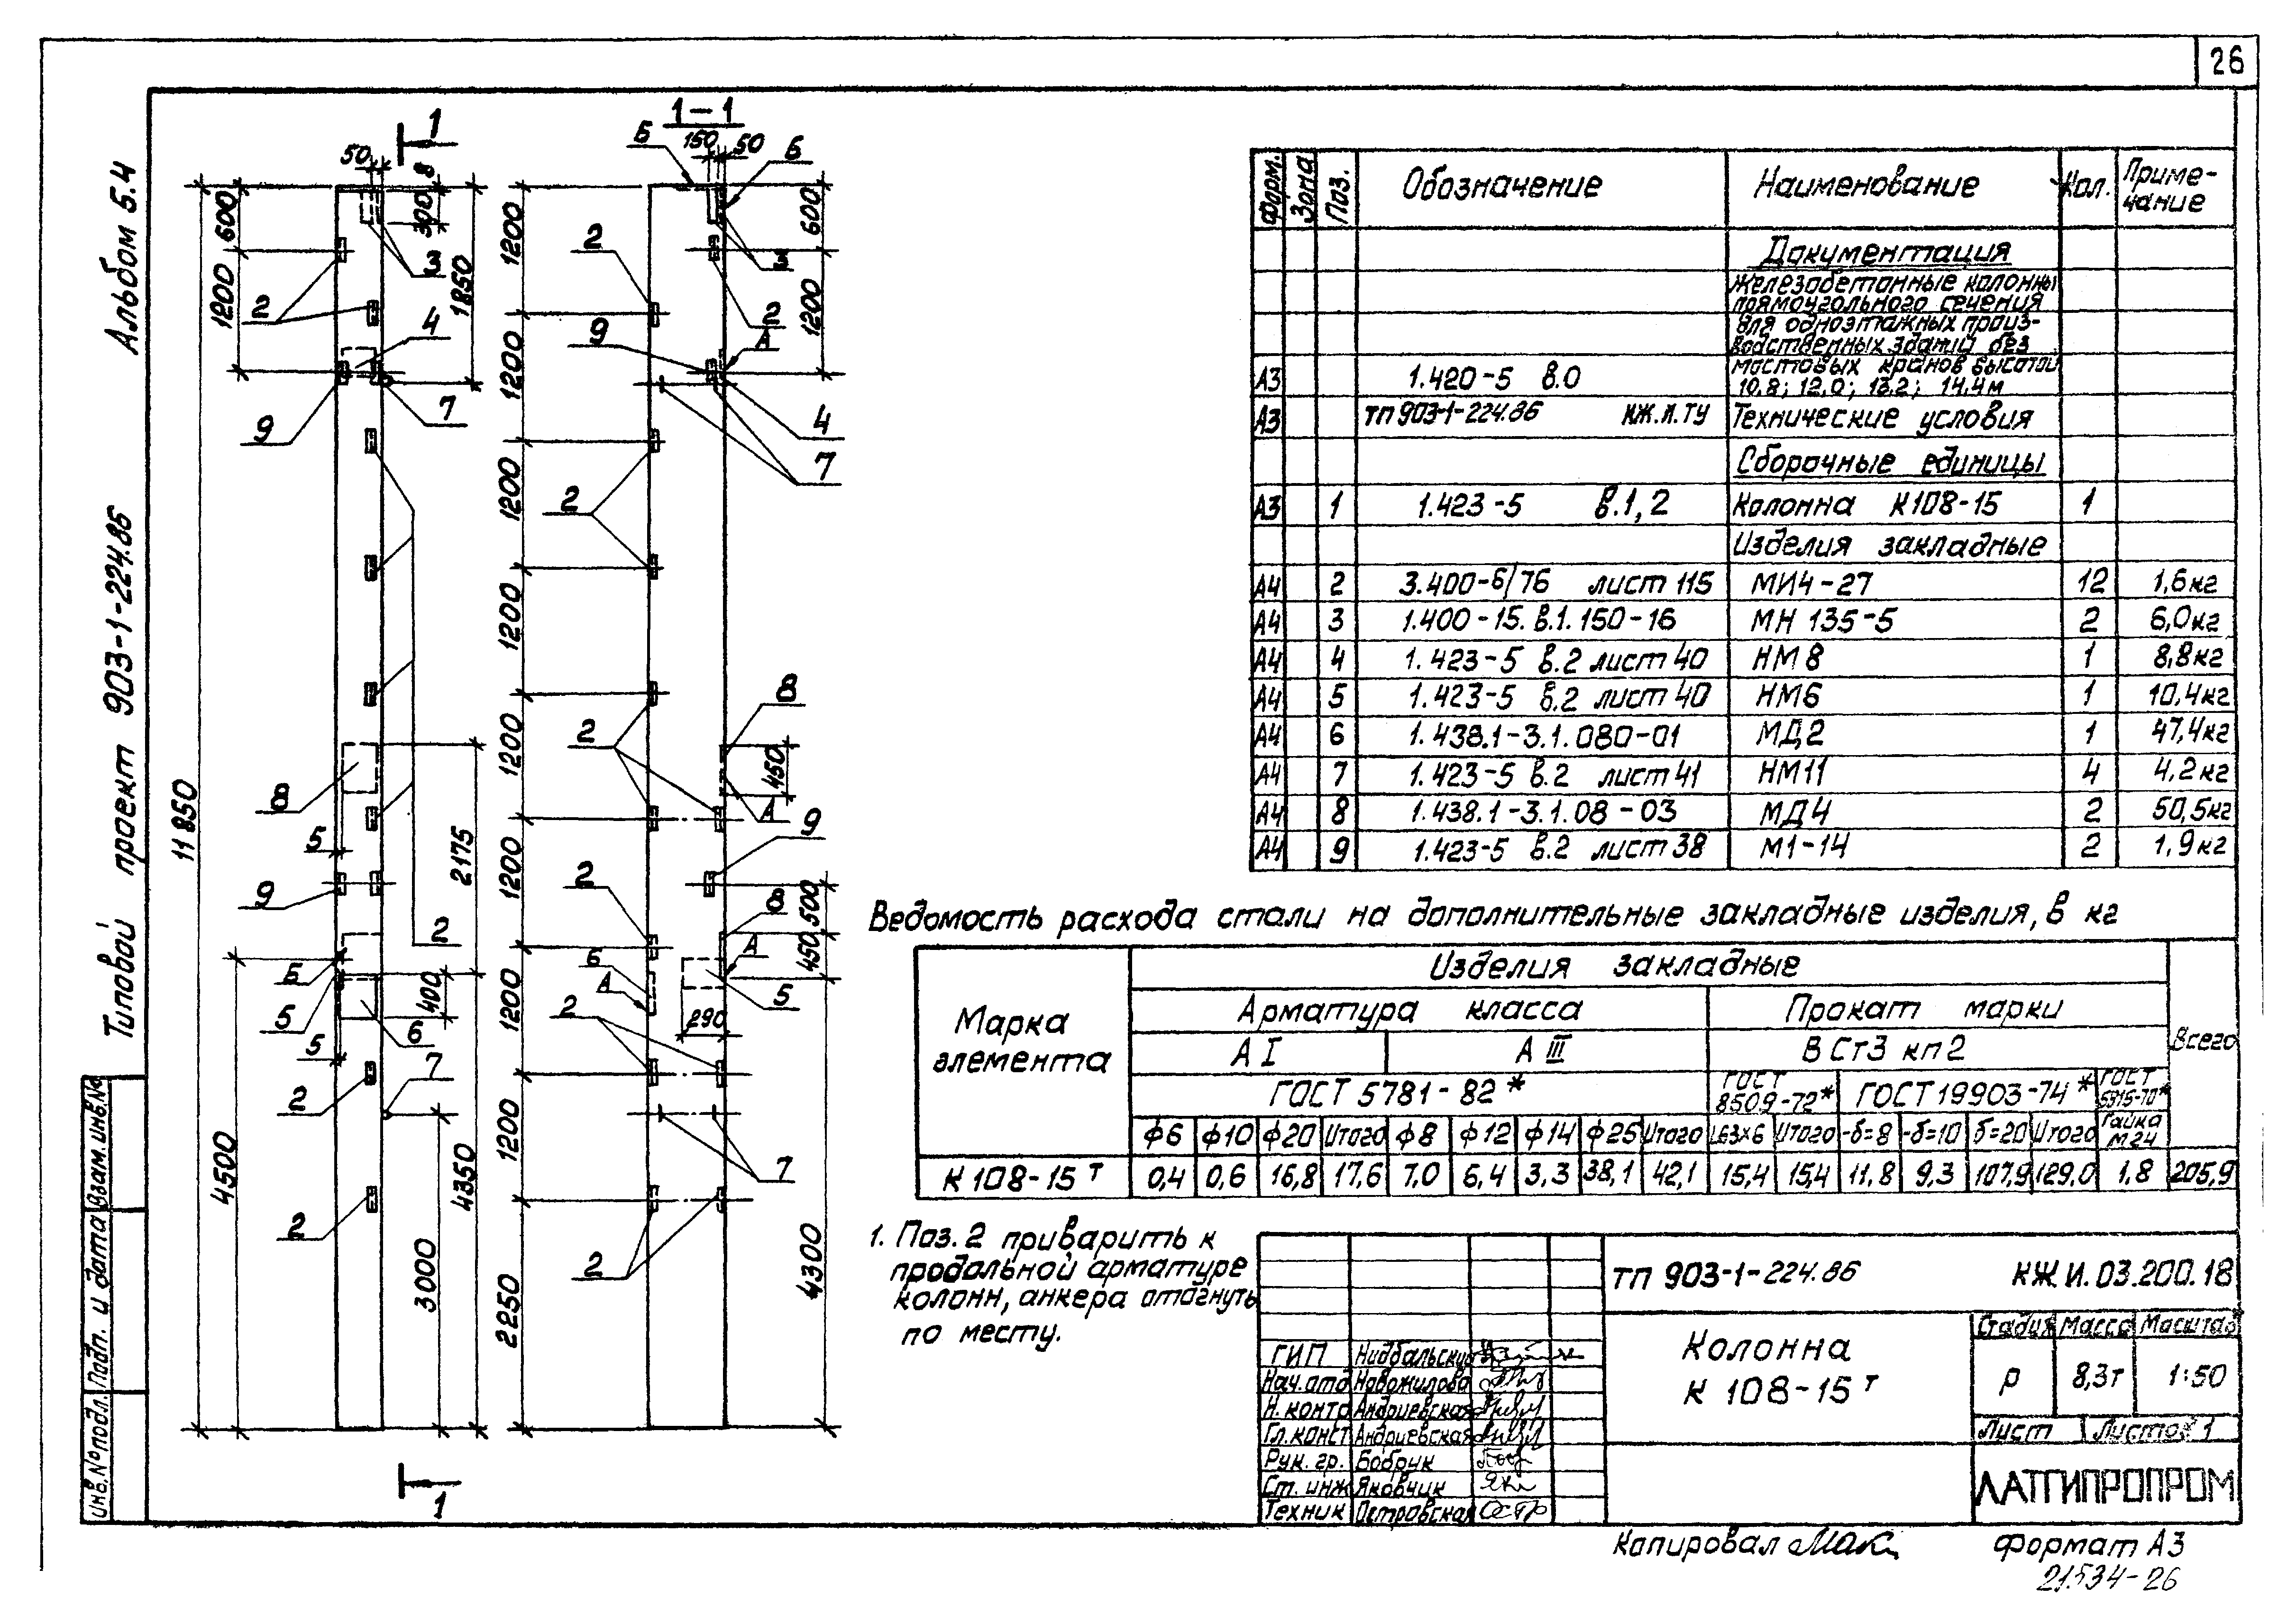 26
Альбом 5.4
Типовой проект 903-1-224.86
Инв.№подл.
Подп. и дата
Взам.инв.№
1
1
50
8
300
600
1200
1850
11850
4500
2175
400
3000
4350
3
2
4
9
7
2
8
5
9
Б
5
5
6
7
2
2
1-1
Б
150
50
Б
600
1200
1200
1200
1200
1200
1200
1200
1200
1200
2250
2
3
2
9
А
4
7
2
8
2
450
А
9
2
8
500
450
6
А
А
5
290
2
7
2
4300
Форм.
Зона
Поз.
Обозначение
Наименование
Кол.
Приме-
чание
Документация
Железобетонные колонны
прямоугольного сечения
для одноэтажных произ-
водственных зданий без
мостовых кранов высотой
А3 1.420-5 в.0 10,8; 12,0; 13,2; 14,4м
А3 тп 903-1-224.86 КЖ.И.ТУ Технические условия
Сборочные единицы
А3 1 1.423-5 в.1,2 Колонна К108-15 1
Изделия закладные
А4 2 3.400-6/76 лист 115 МИ4-27 12 1,6кг
А4 3 1.400-15.в.1.150-16 МН 135-5 2 6,0кг
А4 4 1.423-5 в.2 лист 40 НМ8 1 8,8кг
А4 5 1.423-5 в.2 лист 40 НМ6 1 10,4кг
А4 6 1.438.1-3.1.080-01 МД2 1 47,4кг
А4 7 1.423-5 в.2 лист 41 НМ11 4 4,2кг
А4 8 1.438.1-3.1.08-03 МД4 2 50,5кг
А4 9 1.423-5 в.2 лист 38 М1-14 2 1,9кг
Ведомость расхода стали на дополнительные закладные изделия, в кг
Марка
элемента
Изделия закладные
Всего
Арматура класса
Прокат марки
А I
А III
ВСт3 кп2
ГОСТ 5781-82*
ГОСТ
8509-72*
ГОСТ 19903-74*
ГОСТ
5915-70*
ф6 ф10 ф20 Итого ф8 ф12 ф14 ф25 Итого L63х6 Итого -δ=8 -δ=10 δ=20 Итого Гайка М24
К 108-15 т 0,4 0,6 16,8 17,6 7,0 6,4 3,3 38,1 42,1 15,4 15,4 11,8 9,3 107,9 129,0 1,8 205,9
1. Поз. 2 приварить к
продольной арматуре
колонн, анкера отогнуть
по месту.
тп 903-1-224.86 КЖ И.03.200.18
Колонна
К 108-15 т
Стадия Масса Масштаб
Р 8,3т 1:50
Лист Листов 1
ЛАТГИПРОПРОМ
ГИП Нидбальский
Нач.отд Новожилова
Н. контр Андриевская
Гл.конст Андриевская
Рук. гр. Бобрик
Ст. инж Яковчик
Техник Петровская
Копировал Мак.
Формат А3
21534-26